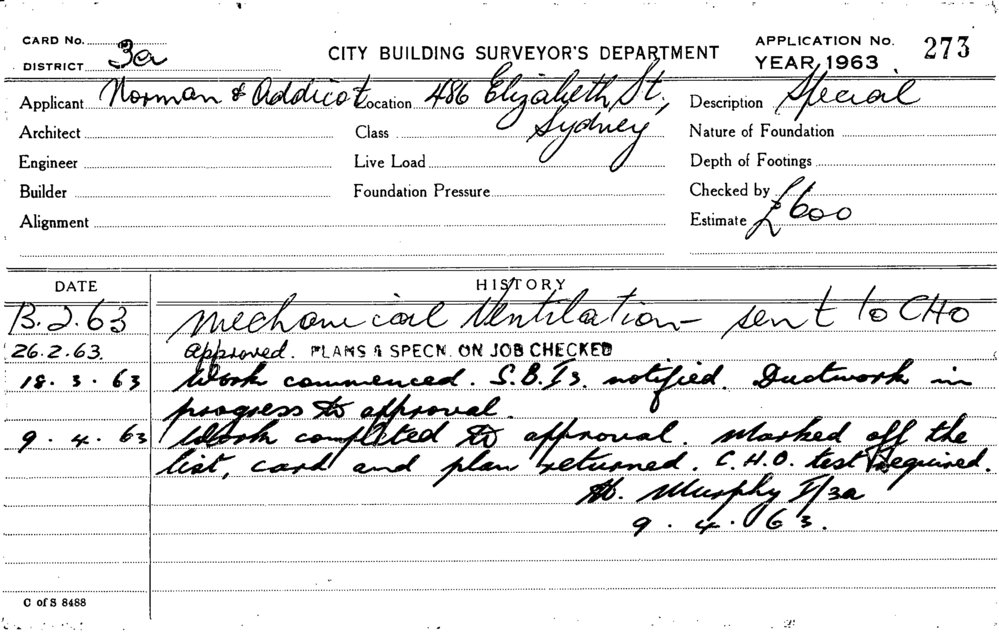 CARD No.
DISTRICT 3a
CITY BUILDING SURVEYOR'S DEPARTMENT
APPLICATION No. 273
YEAR 1963
Applicant Norman & Addicot Location 486 Elizabeth St., Description Special
Sydney
Architect Class Nature of Foundation
Engineer Live Load Depth of Footings
Builder Foundation Pressure Checked by
Alignment Estimate £600
DATE HISTORY
13.2.63 Mechanical Ventilation – sent to CHO
26.2.63. approved. PLANS & SPECN. ON JOB CHECKED
18.3.63 Work commenced. S.B.Is. notified. Ductwork in
progress to approval.
9.4.63 Work completed to approval. Marked off the
list, card and plan returned. C.H.O. test required.
H. Murphy I/3a
9.4.63.
C of S 8488